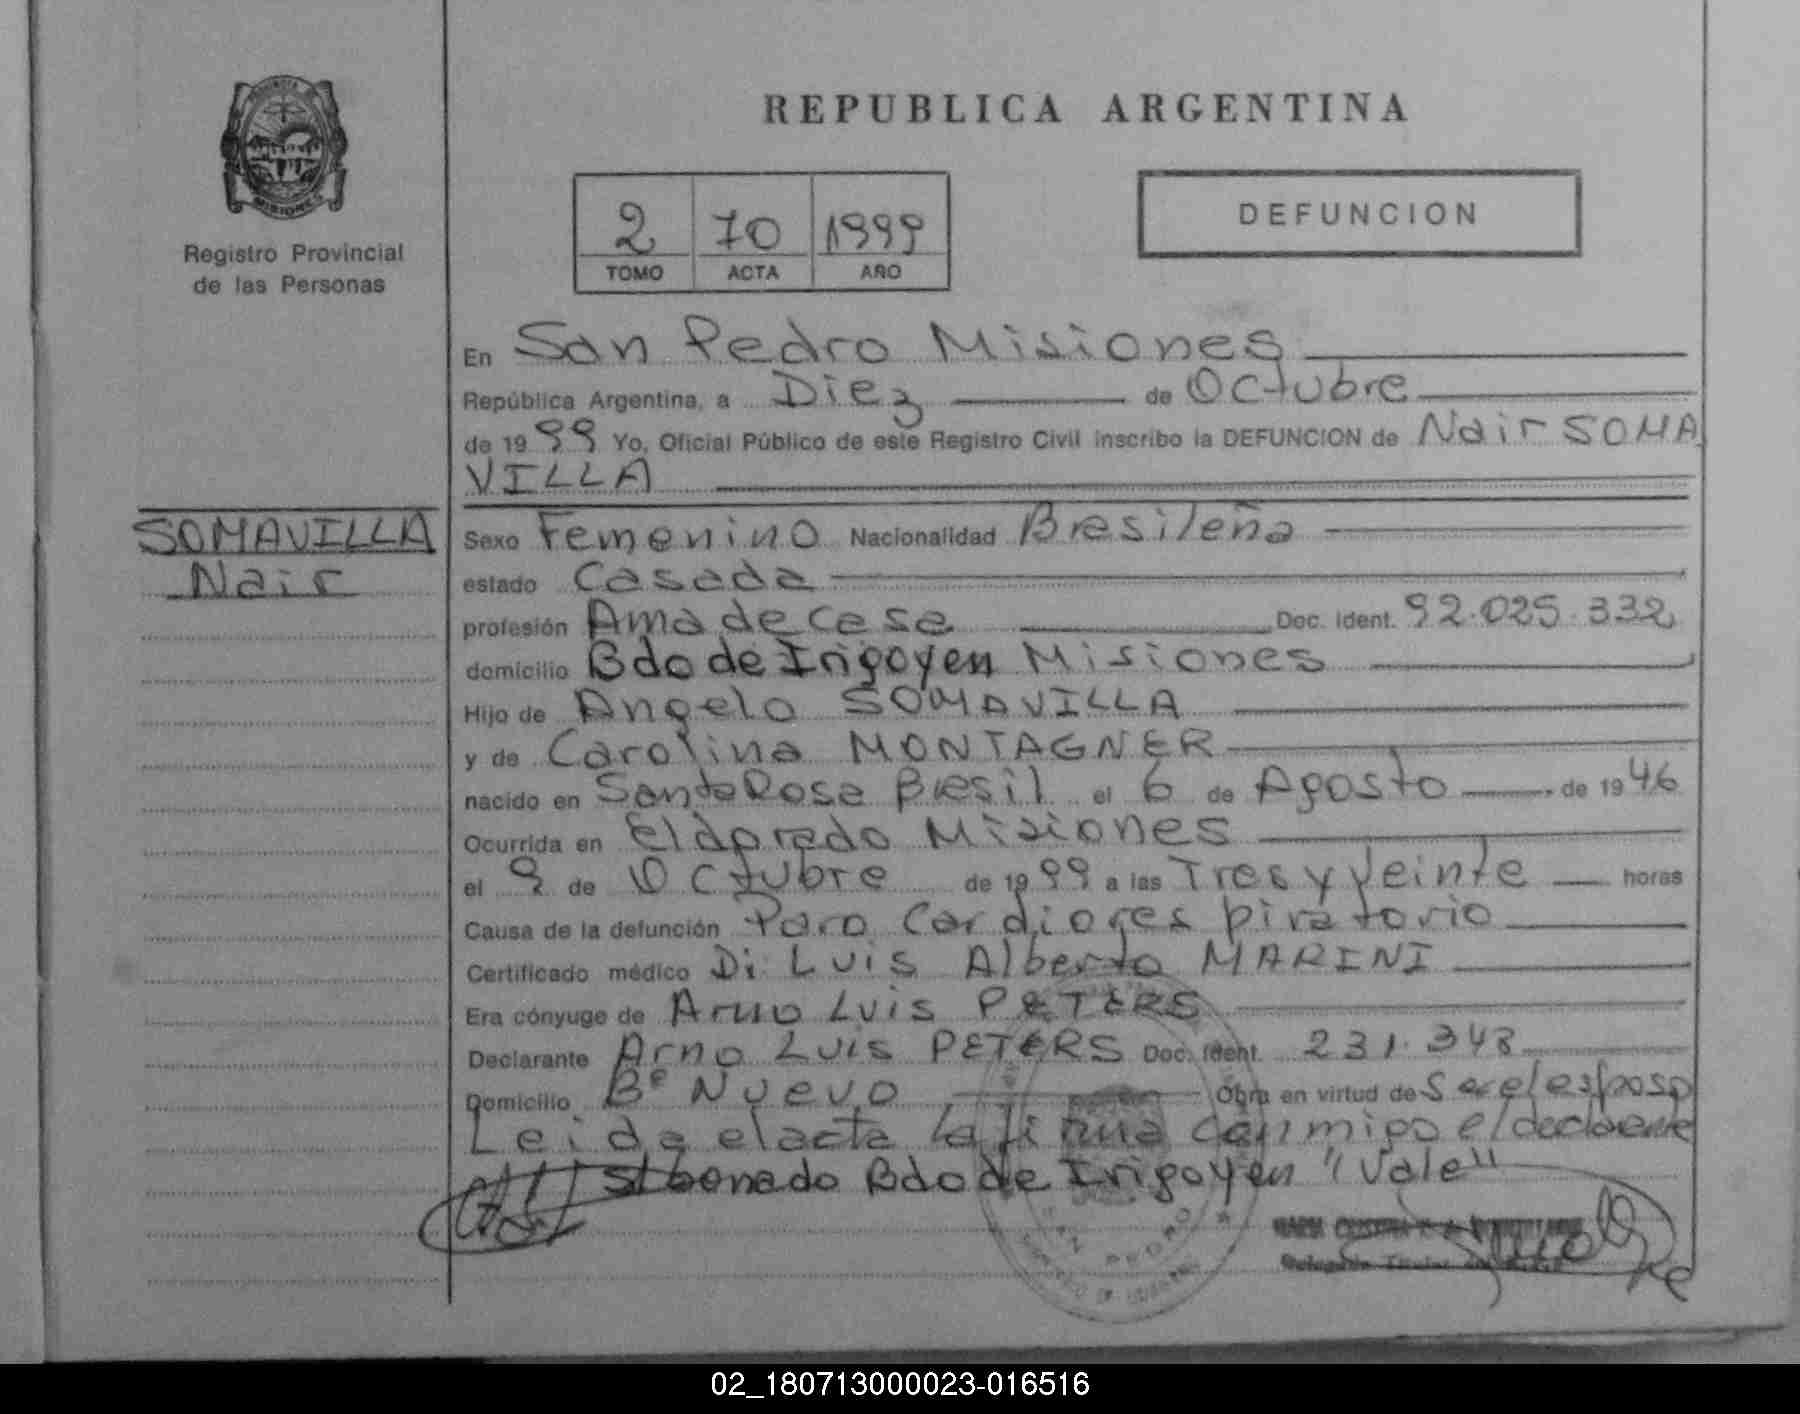 REPUBLICA ARGENTINA
PROVINCIA
MISIONES
Registro Provincial
de las Personas
2 70 1999
TOMO ACTA AÑO
DEFUNCION
En San Pedro Misiones
República Argentina, a Diez de Octubre
de 1999 Yo, Oficial Público de este Registro Civil inscribo la DEFUNCION de Nair SOMA
VILLA
SOMAVILLA
Nair
Sexo Femenino Nacionalidad Bresileña
estado Casada
profesión Ama de Casa Doc. Ident. 92.025.332
domicilio Bdo de Irigoyen Misiones
Hijo de Angelo SOMAVILLA
y de Carolina MONTAGNER
nacido en Santa Rosa Bresil el 6 de Agosto de 1946
Ocurrida en Eldorado Misiones
el 9 de Octubre de 1999 a las Tres y Veinte horas
Causa de la defunción Paro Cardiorespiratorio
Certificado médico Dr Luis Alberto MARINI
Era cónyuge de Arno Luis PETERS
Declarante Arno Luis PETERS Doc. Ident. 231.348
Domicilio Bº Nuevo Obra en virtud de Ser el esposo
Leida el acta la firma conmigo el declarante
S/ borrado Bdo de Irigoyen "Vale"
SAN PEDRO
02_180713000023-016516